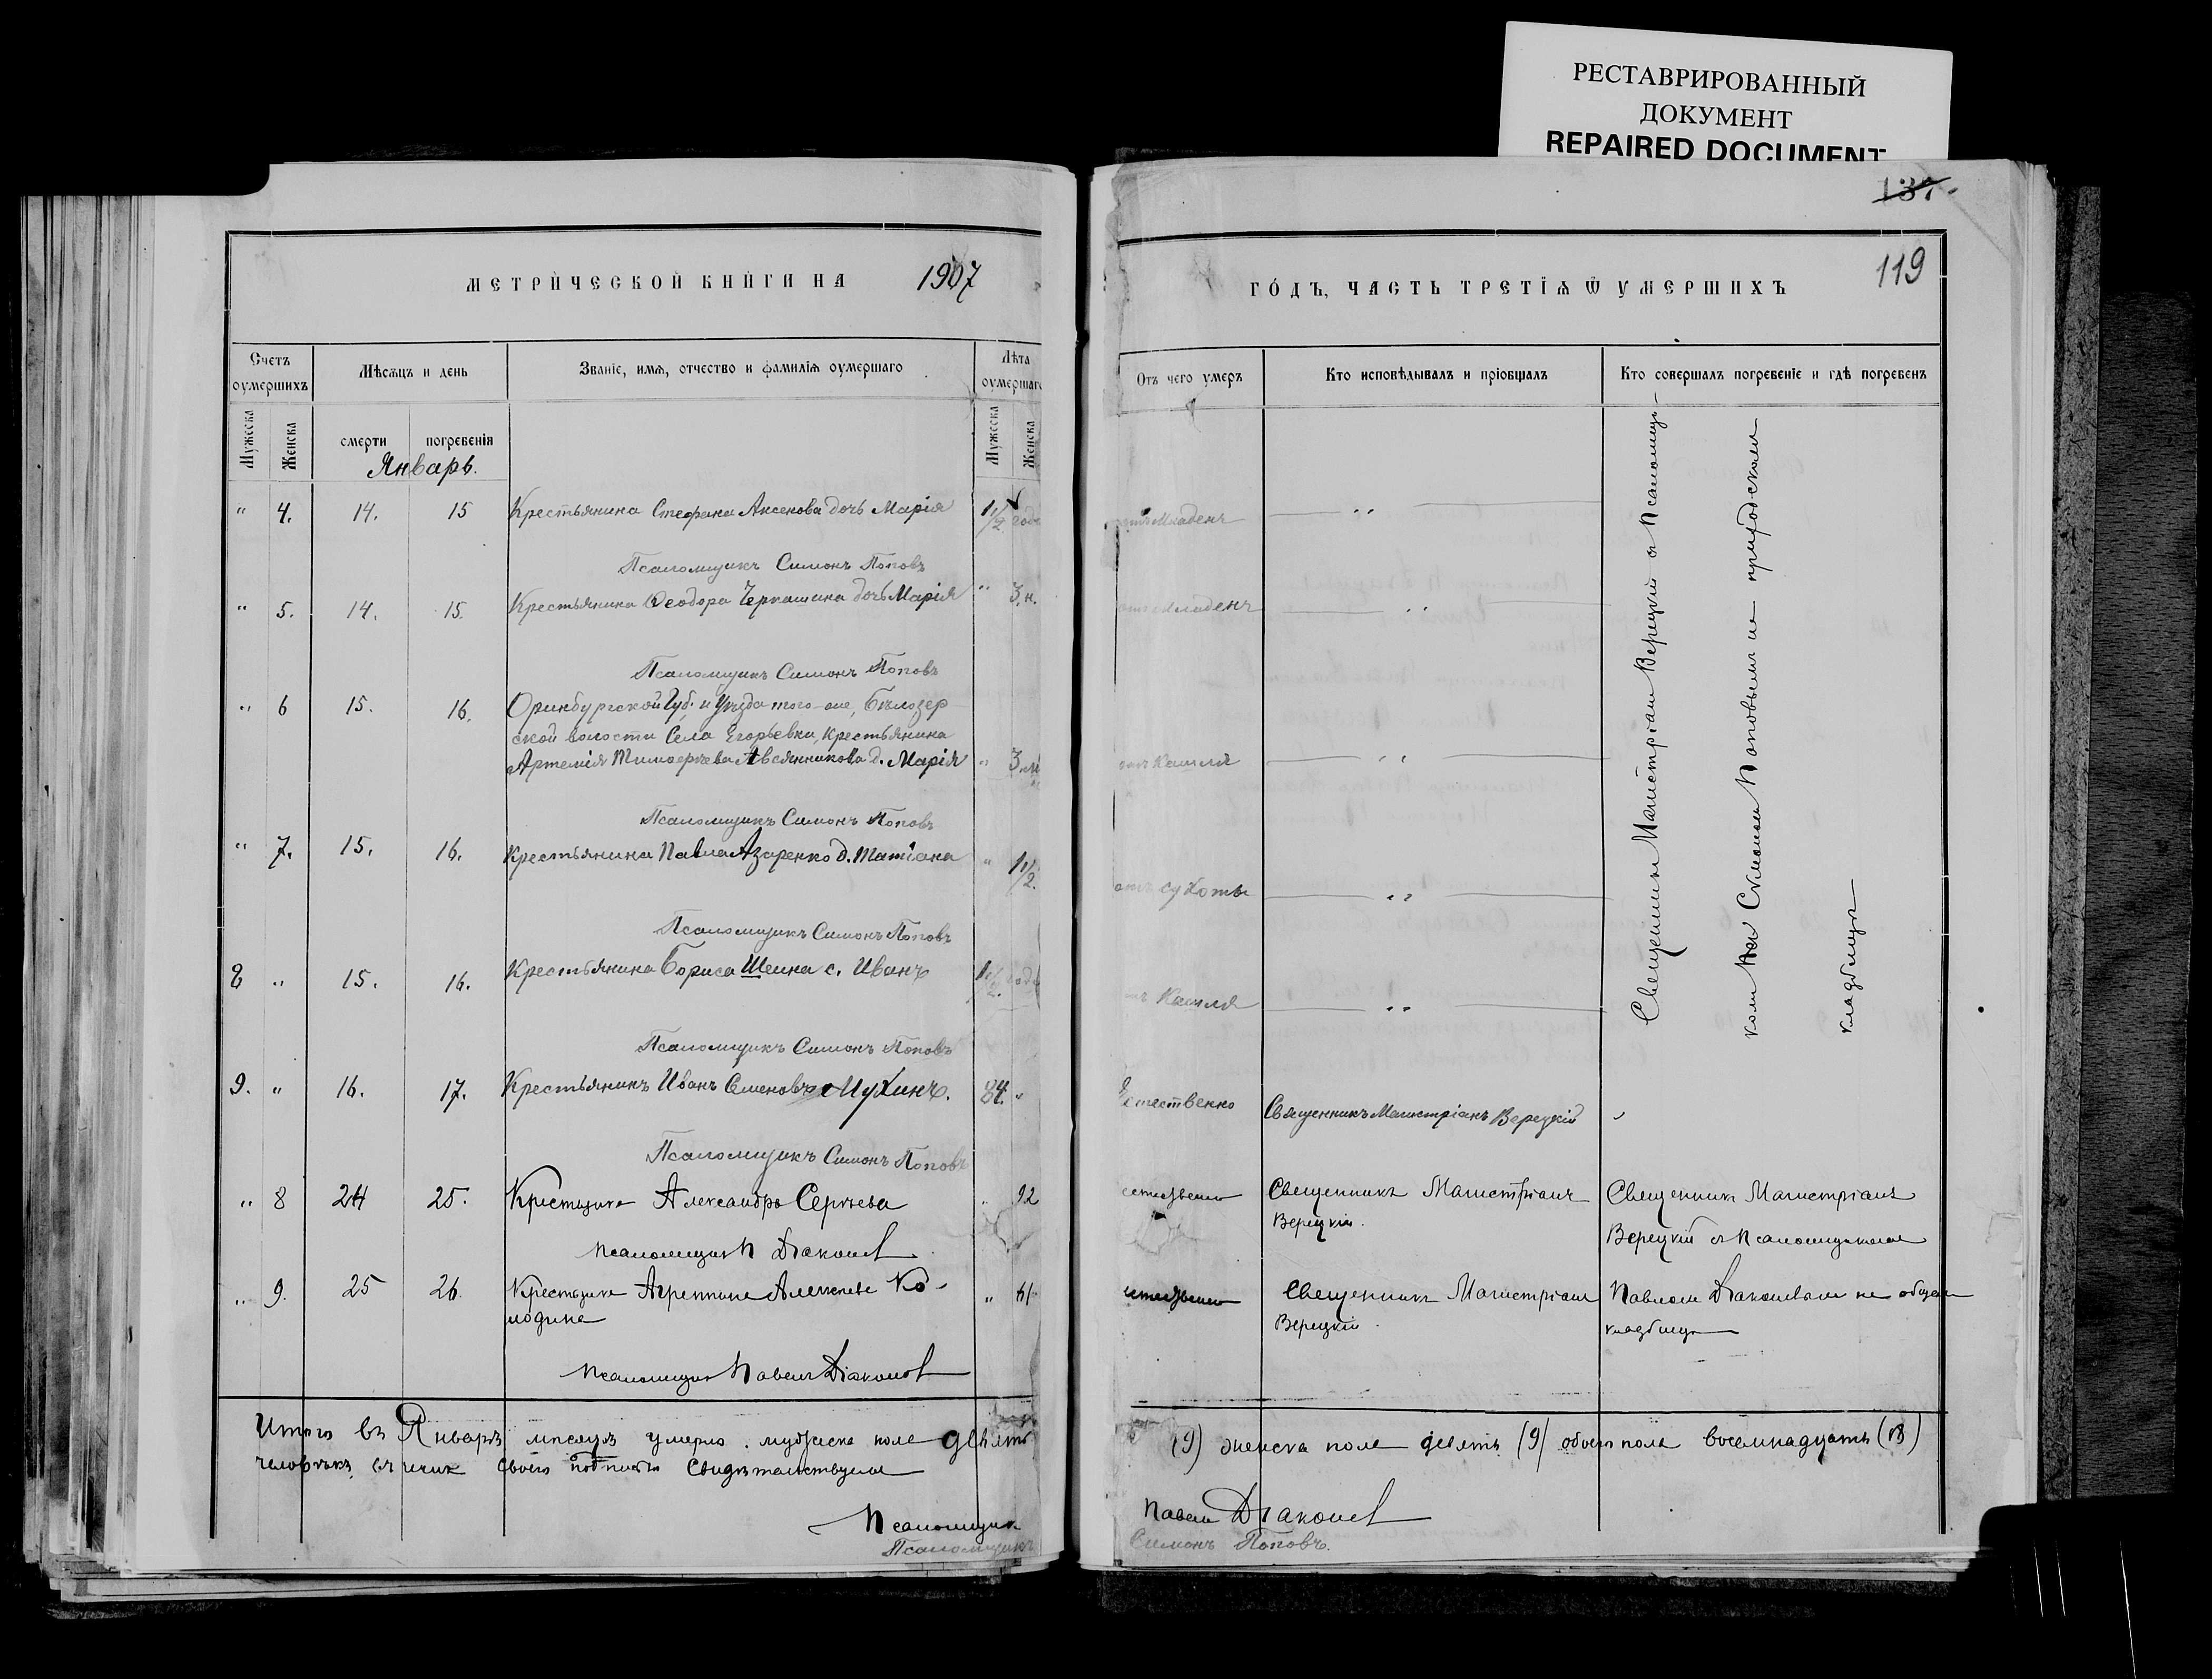 РЕСТАВРИРОВАННЫЙ
ДОКУМЕНТ
REPAIRED DOCUMENT
137
119
МЕТРИЧЕСКОЙ КНИГИ НА 1907
ГОДЪ, ЧАСТЬ ТРЕТІѦ Ѿ УМЕРШИХЪ
Счетъ оумершихъ
Мѣсѧцъ и день
Званіе, имѧ, отчество и фамилія оумершаго
Лѣта оумершаго
Отъ чего умеръ
Кто исповѣдывалъ и пріобщалъ
Кто совершалъ погребеніе и гдѣ погребенъ
Мужеска
Женска
смерти
погребенія
Мужеска
Женска
Январь.
" 4. 14. 15 Крестьянина Стефана Аксенова дочь Марія 1 1/2 года
младенч
Псаломщикъ Симонъ Поповъ
" 5. 14. 15. Крестьянина Ѳеодора Черкашина дочь Марія " 3. н.
младенч
Псаломщикъ Симонъ Поповъ
" 6 15. 16. Оринбургской Губ. и Уѣзда того-же, Бѣлозер
ской волости Села Егорьевки, Крестьянина
Артемія Тимофѣева Авсянникова д. Марія " 3. м
отъ Кашля
Псаломщикъ Симонъ Поповъ
" 7. 15. 16. Крестьянина Павла Азаренко д. Татіана " 1 1/2.
отъ сухоты
Псаломщикъ Симонъ Поповъ
8 " 15. 16. Крестьянина Бориса Шеина с. Иванъ 1 1/2. года
Кашля
Псаломщикъ Симонъ Поповъ
9. " 16. 17. Крестьянинъ Иванъ Семеновъ Мухинъ. 84. "
Естественно Священникъ Магистріанъ Верецкій
Псаломщикъ Симонъ Поповъ
Священникъ Магистріан Верецкій съ Псаломщи-
комъ Симоном Поповымъ на приходском
кладбищѣ
" 8 24 25. Крестьянка Александра Сергѣева " 92
Священникъ Магистріанъ
Верецкій.
Священникъ Магистріанъ
Верецкій съ Псаломщиком
Псаломщик П Дьяконов
" 9. 25 26. Крестьянка Агриппина Алексѣева Ко-
лодина
" 61
Священникъ Магистріан
Верецкій.
Павлом Дьяконовым на общем
кладбищѣ
Псаломщик Павелъ Дьяконов
Итого въ Январѣ мѣсяцѣ умерло мужеска пола девять
(9) женска пола девять (9) обоего пола восемнадцать (18)
человѣкъ, своею подписью свидѣтельствуем
Псаломщик Павел Дьяконов
Псаломщикъ Симонъ Поповъ.